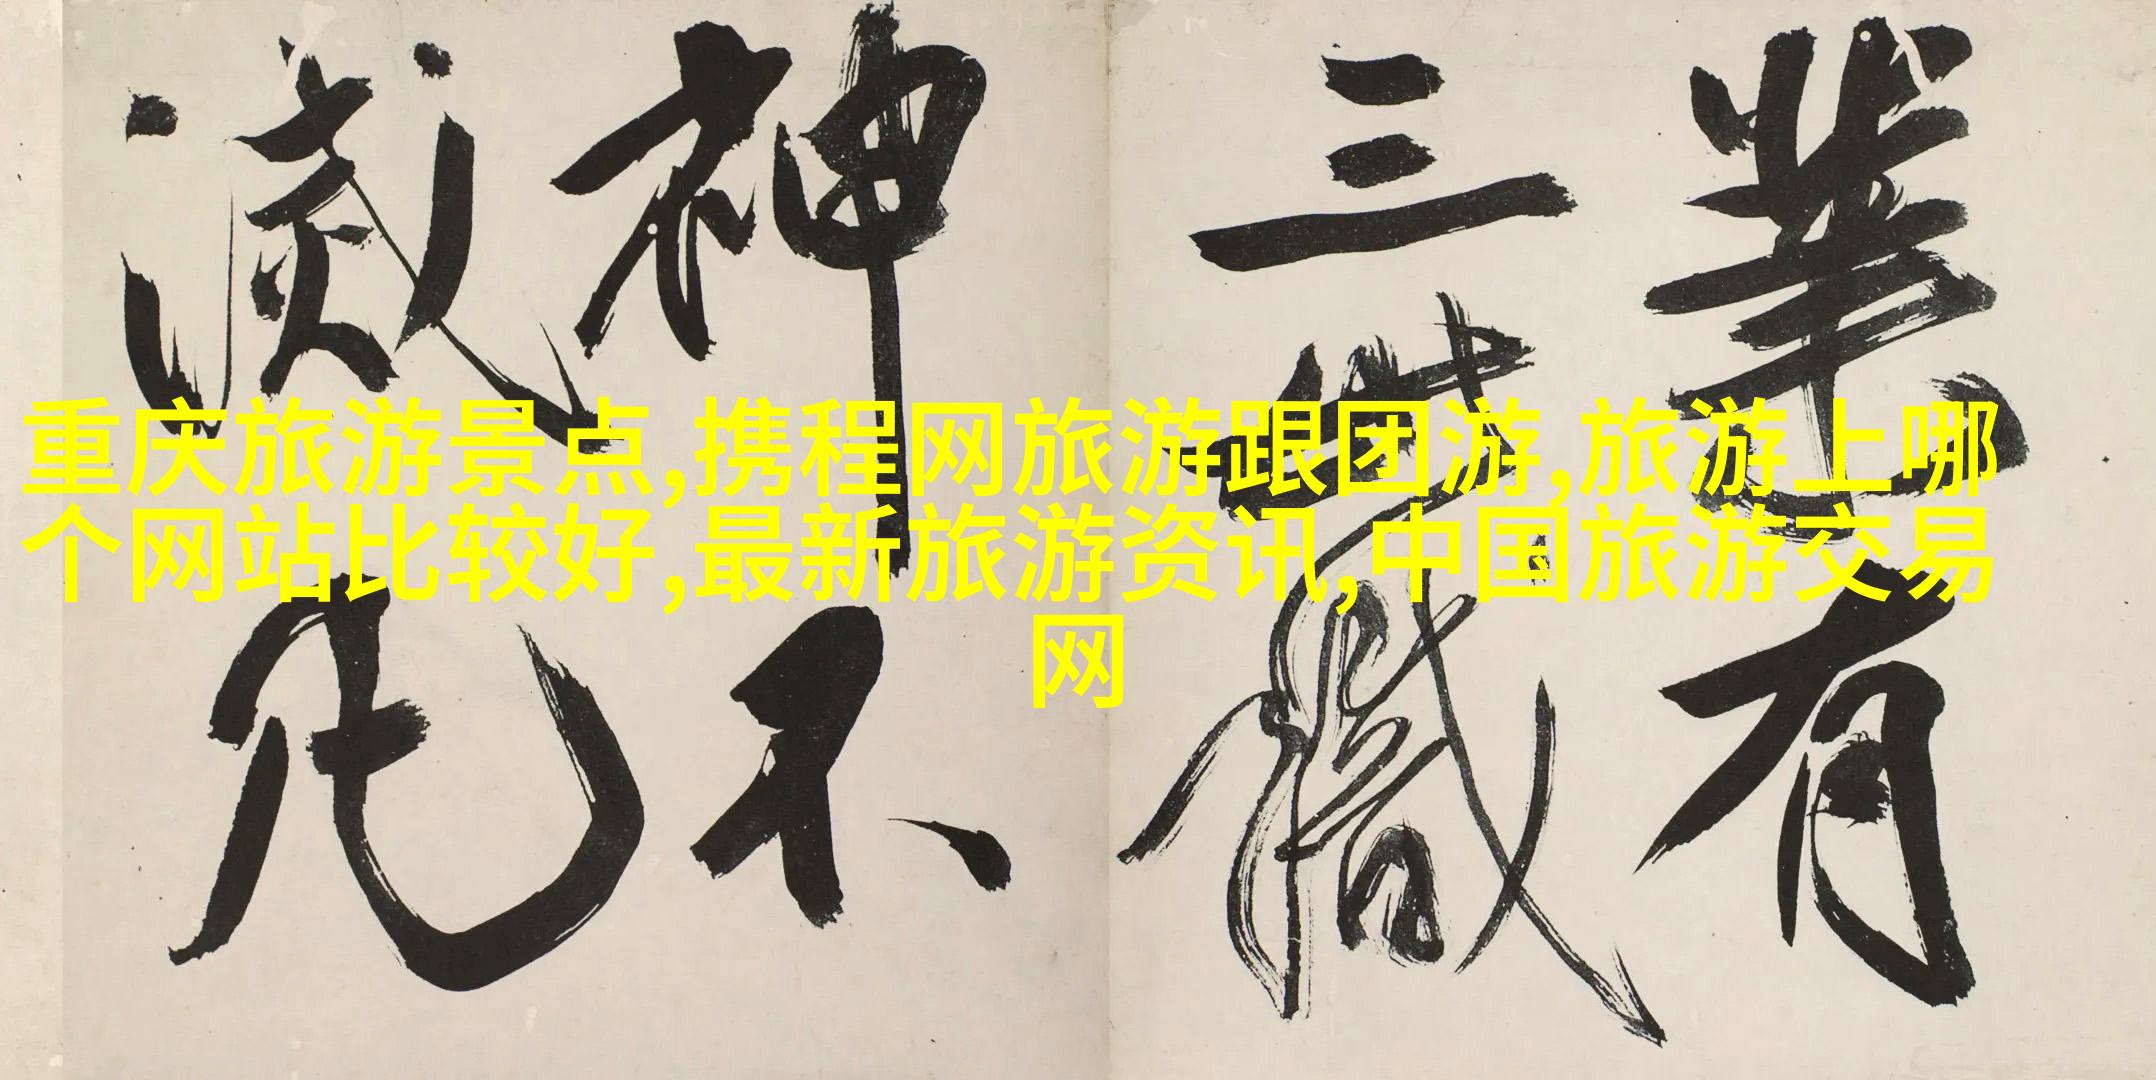 業有
三世職
神不
滅化
重庆旅游景点,携程网旅游跟团游,旅游上哪
个网站比较好,最新旅游资讯,中国旅游交易
网